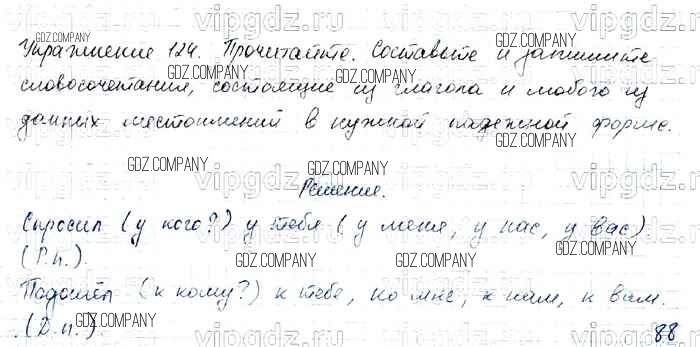 Упражнение 124. Прочитайте. Составьте и запишите
словосочетания, состоящие из глагола и любого из
данных местоимений в нужной падежной форме.
Решение.
Спросил (у кого?) у тебя (у меня, у нас, у вас)
(Р.п.).
Подошёл (к кому?) к тебе, ко мне, к нам, к вам.
(Д.п.).
88